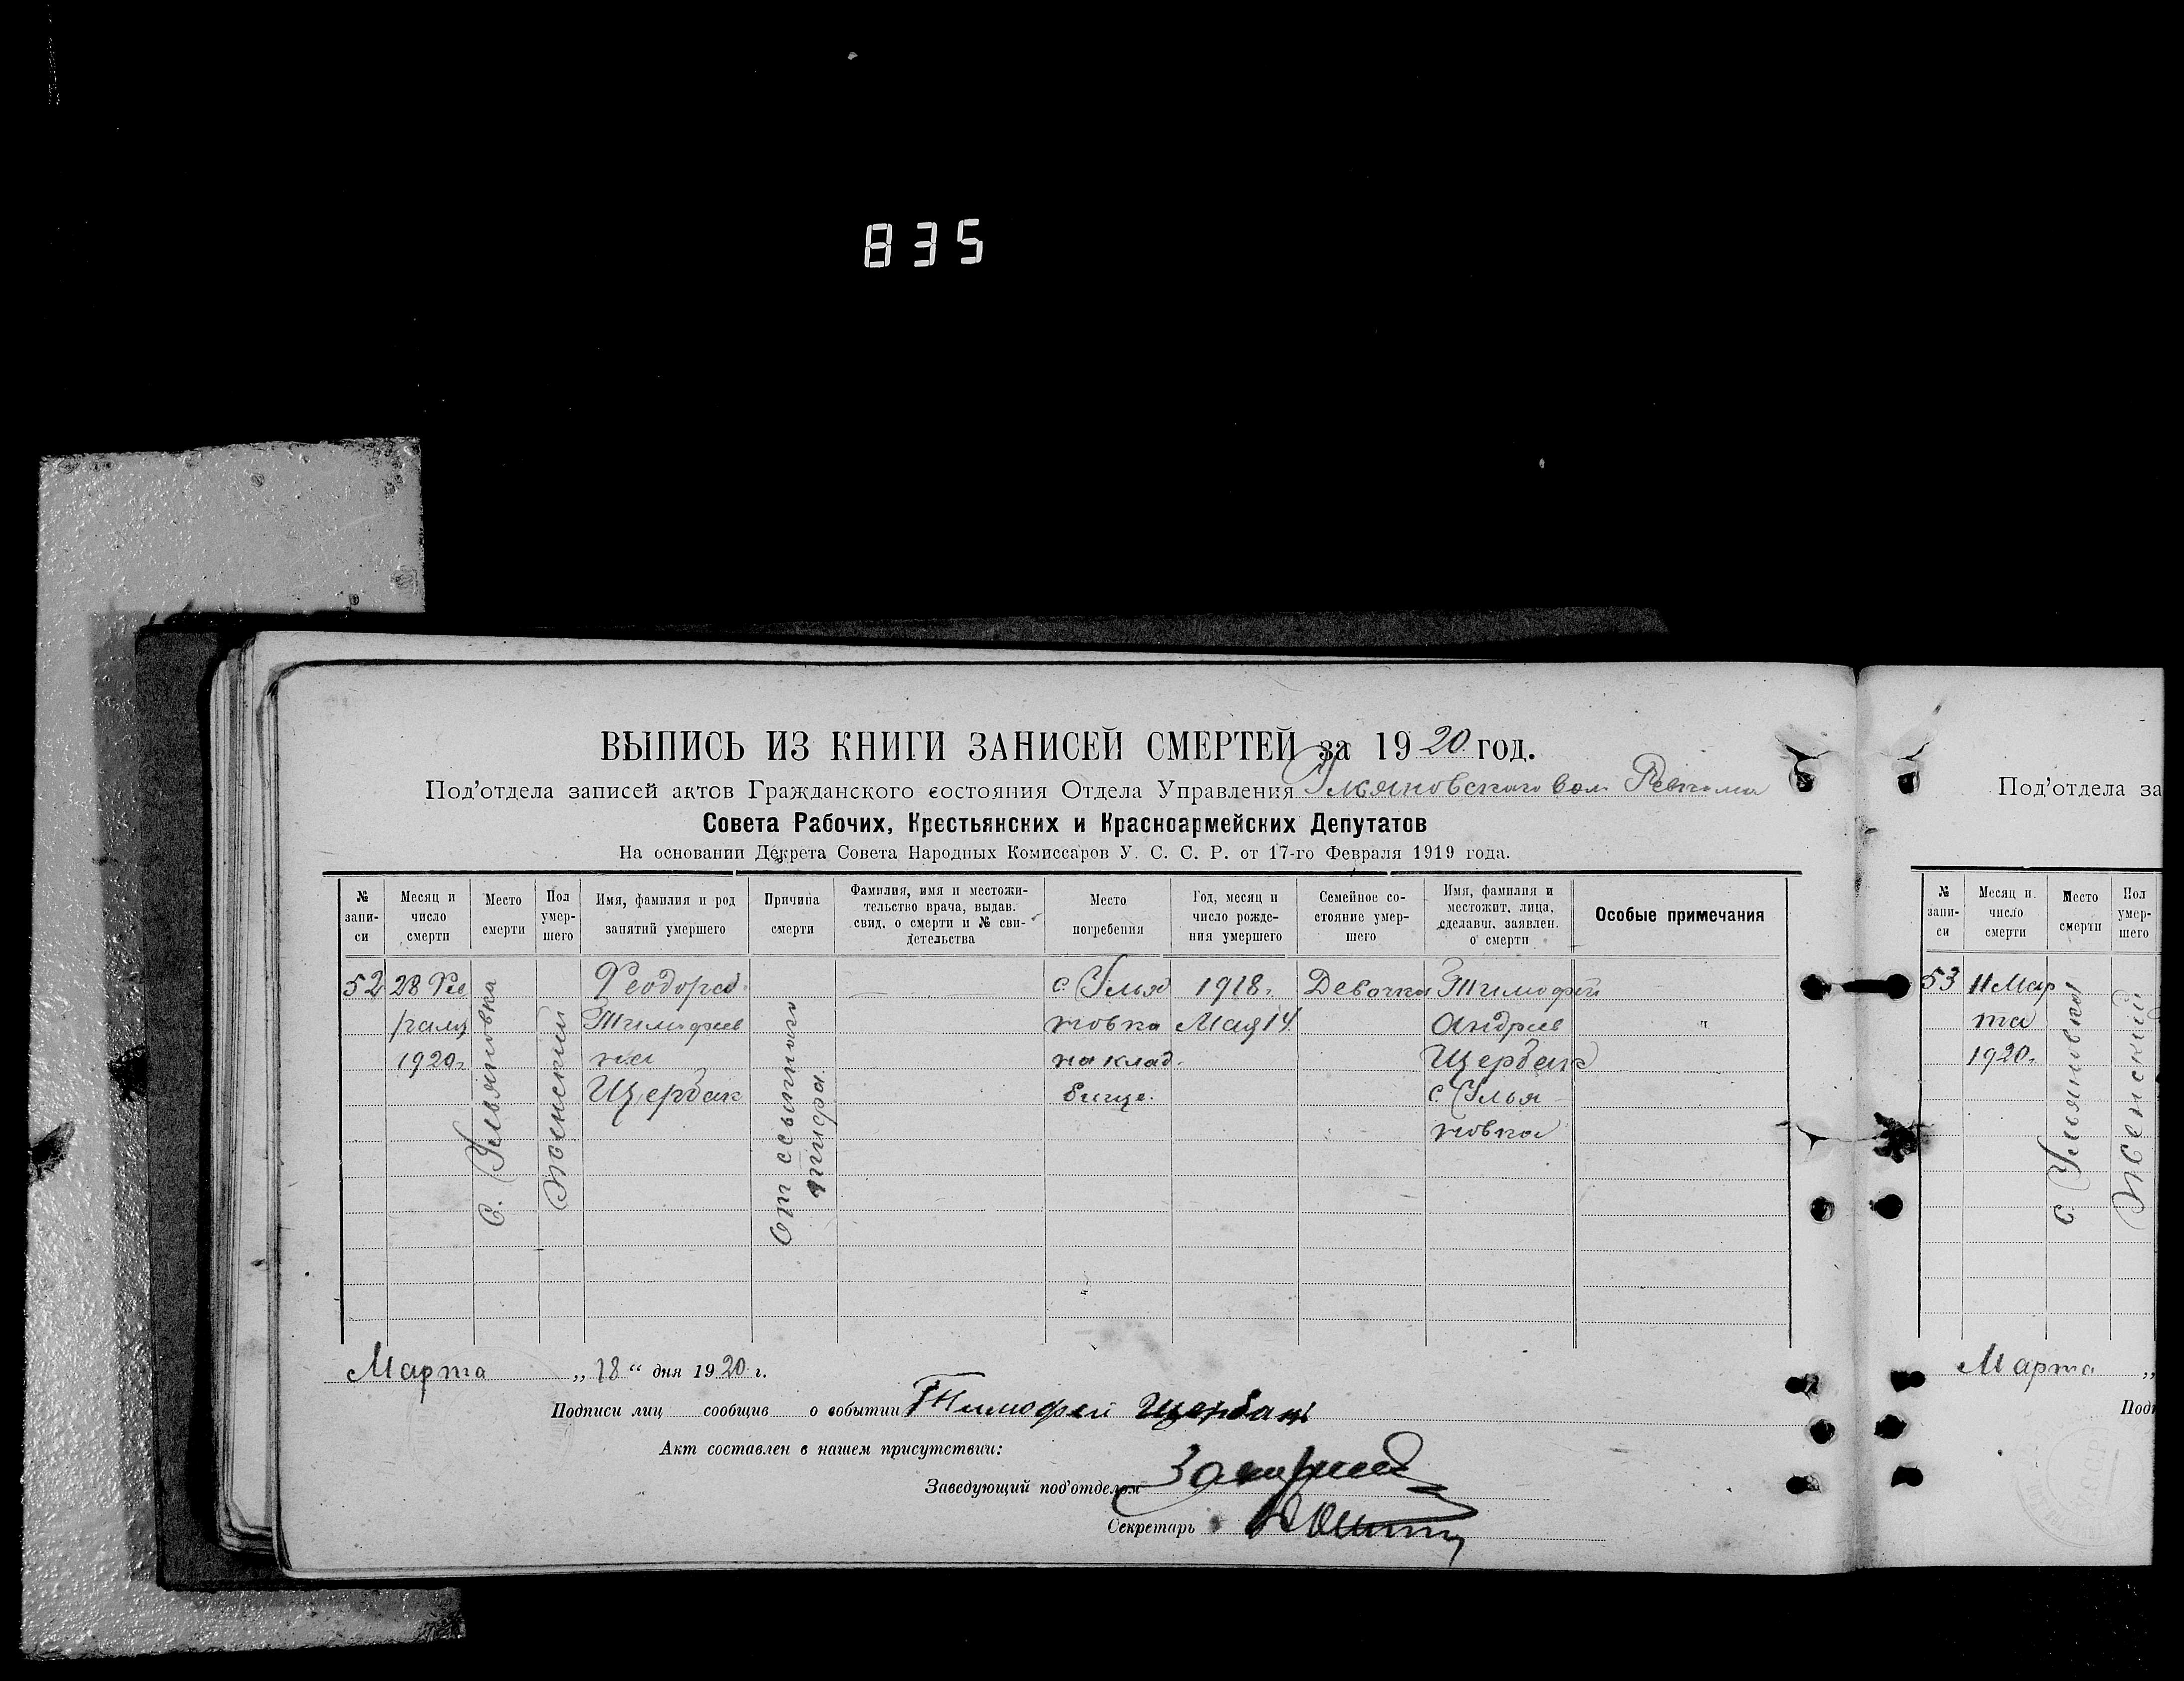 835
ВЫПИСЬ ИЗ КНИГИ ЗАПИСЕЙ СМЕРТЕЙ за 1920 год.
Под'отдела записей актов Гражданского состояния Отдела Управления Ульяновского вол. Ревкома
Совета Рабочих, Крестьянских и Красноармейских Депутатов
На основании Декрета Совета Народных Комиссаров У. С. С. Р. от 17-го Февраля 1919 года.
№ запи-си
Месяц и число смерти
Место смерти
Пол умер-шего
Имя, фамилия и род занятий умершего
Причина смерти
Фамилия, имя и местожи-тельство врача, выдав. свид. о смерти и № сви-детельства
Место погребения
Год, месяц и число рожде-ния умершего
Семейное со-стояние умер-шего
Имя, фамилия и местожит. лица, сделавш. заявлен. о смерти
Особые примечания
52
28 Фев
раля
1920г.
С. Ульяновка
Женский
Феодора
Тимофеев
на
Щербак
От сыпного
тифа.
с Улья
новка
на клад-
бище.
1918г.
Мая 14
Девочка
Тимофей
Андреев
Щербак
с Улья
новка
"
Марта „18“ дня 1920 г.
Подписи лиц сообщив о событии Тимофей Щербак
Акт составлен в нашем присутствии:
Заведующий под'отделом
Секретарь
Под'отдела за
№ запи-си
Месяц и число смерти
Место смерти
Пол умер-шего
53
11 Мар
та
1920г.
С. Ульяновка
Женский
Марта „
Под